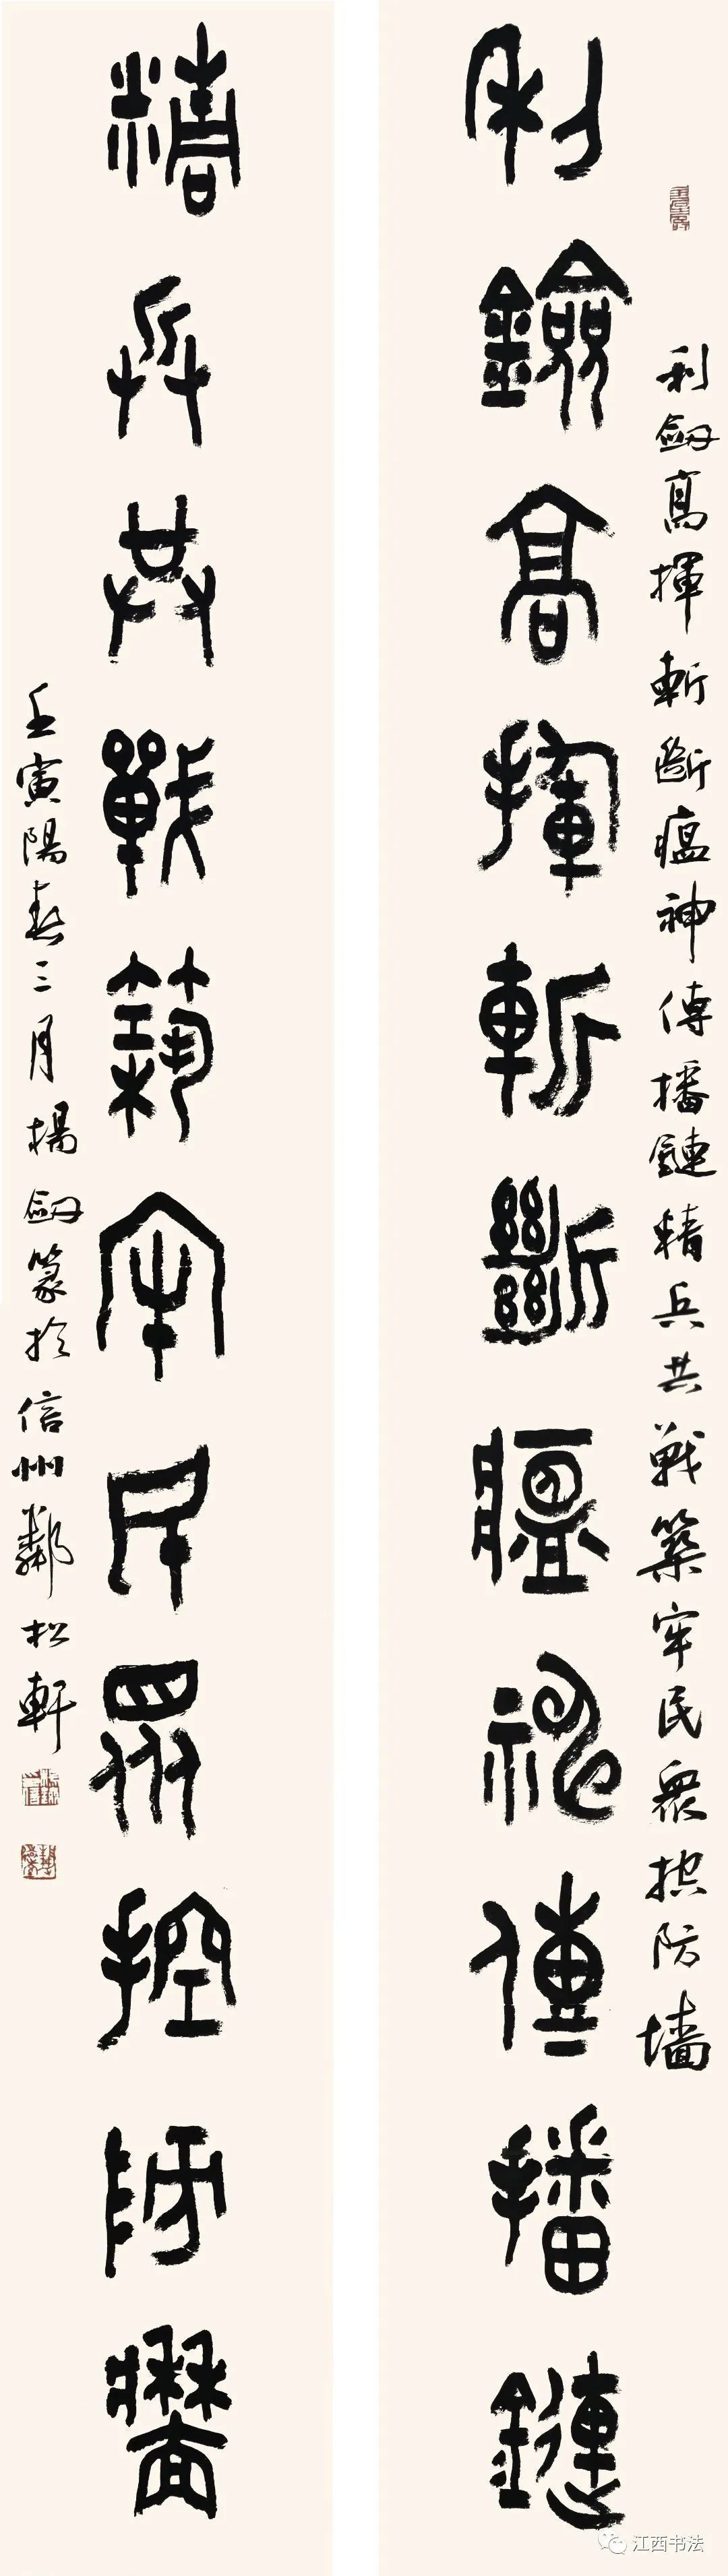 利鐱高揮斬斷瘟神傳播鏈
利劔高揮斬斷瘟神傳播鏈精兵共戰築牢民衆控防墙
精兵共戰築牢民眾控防牆
壬寅陽春三月楊劔篆於信州鄰松軒
江西书法